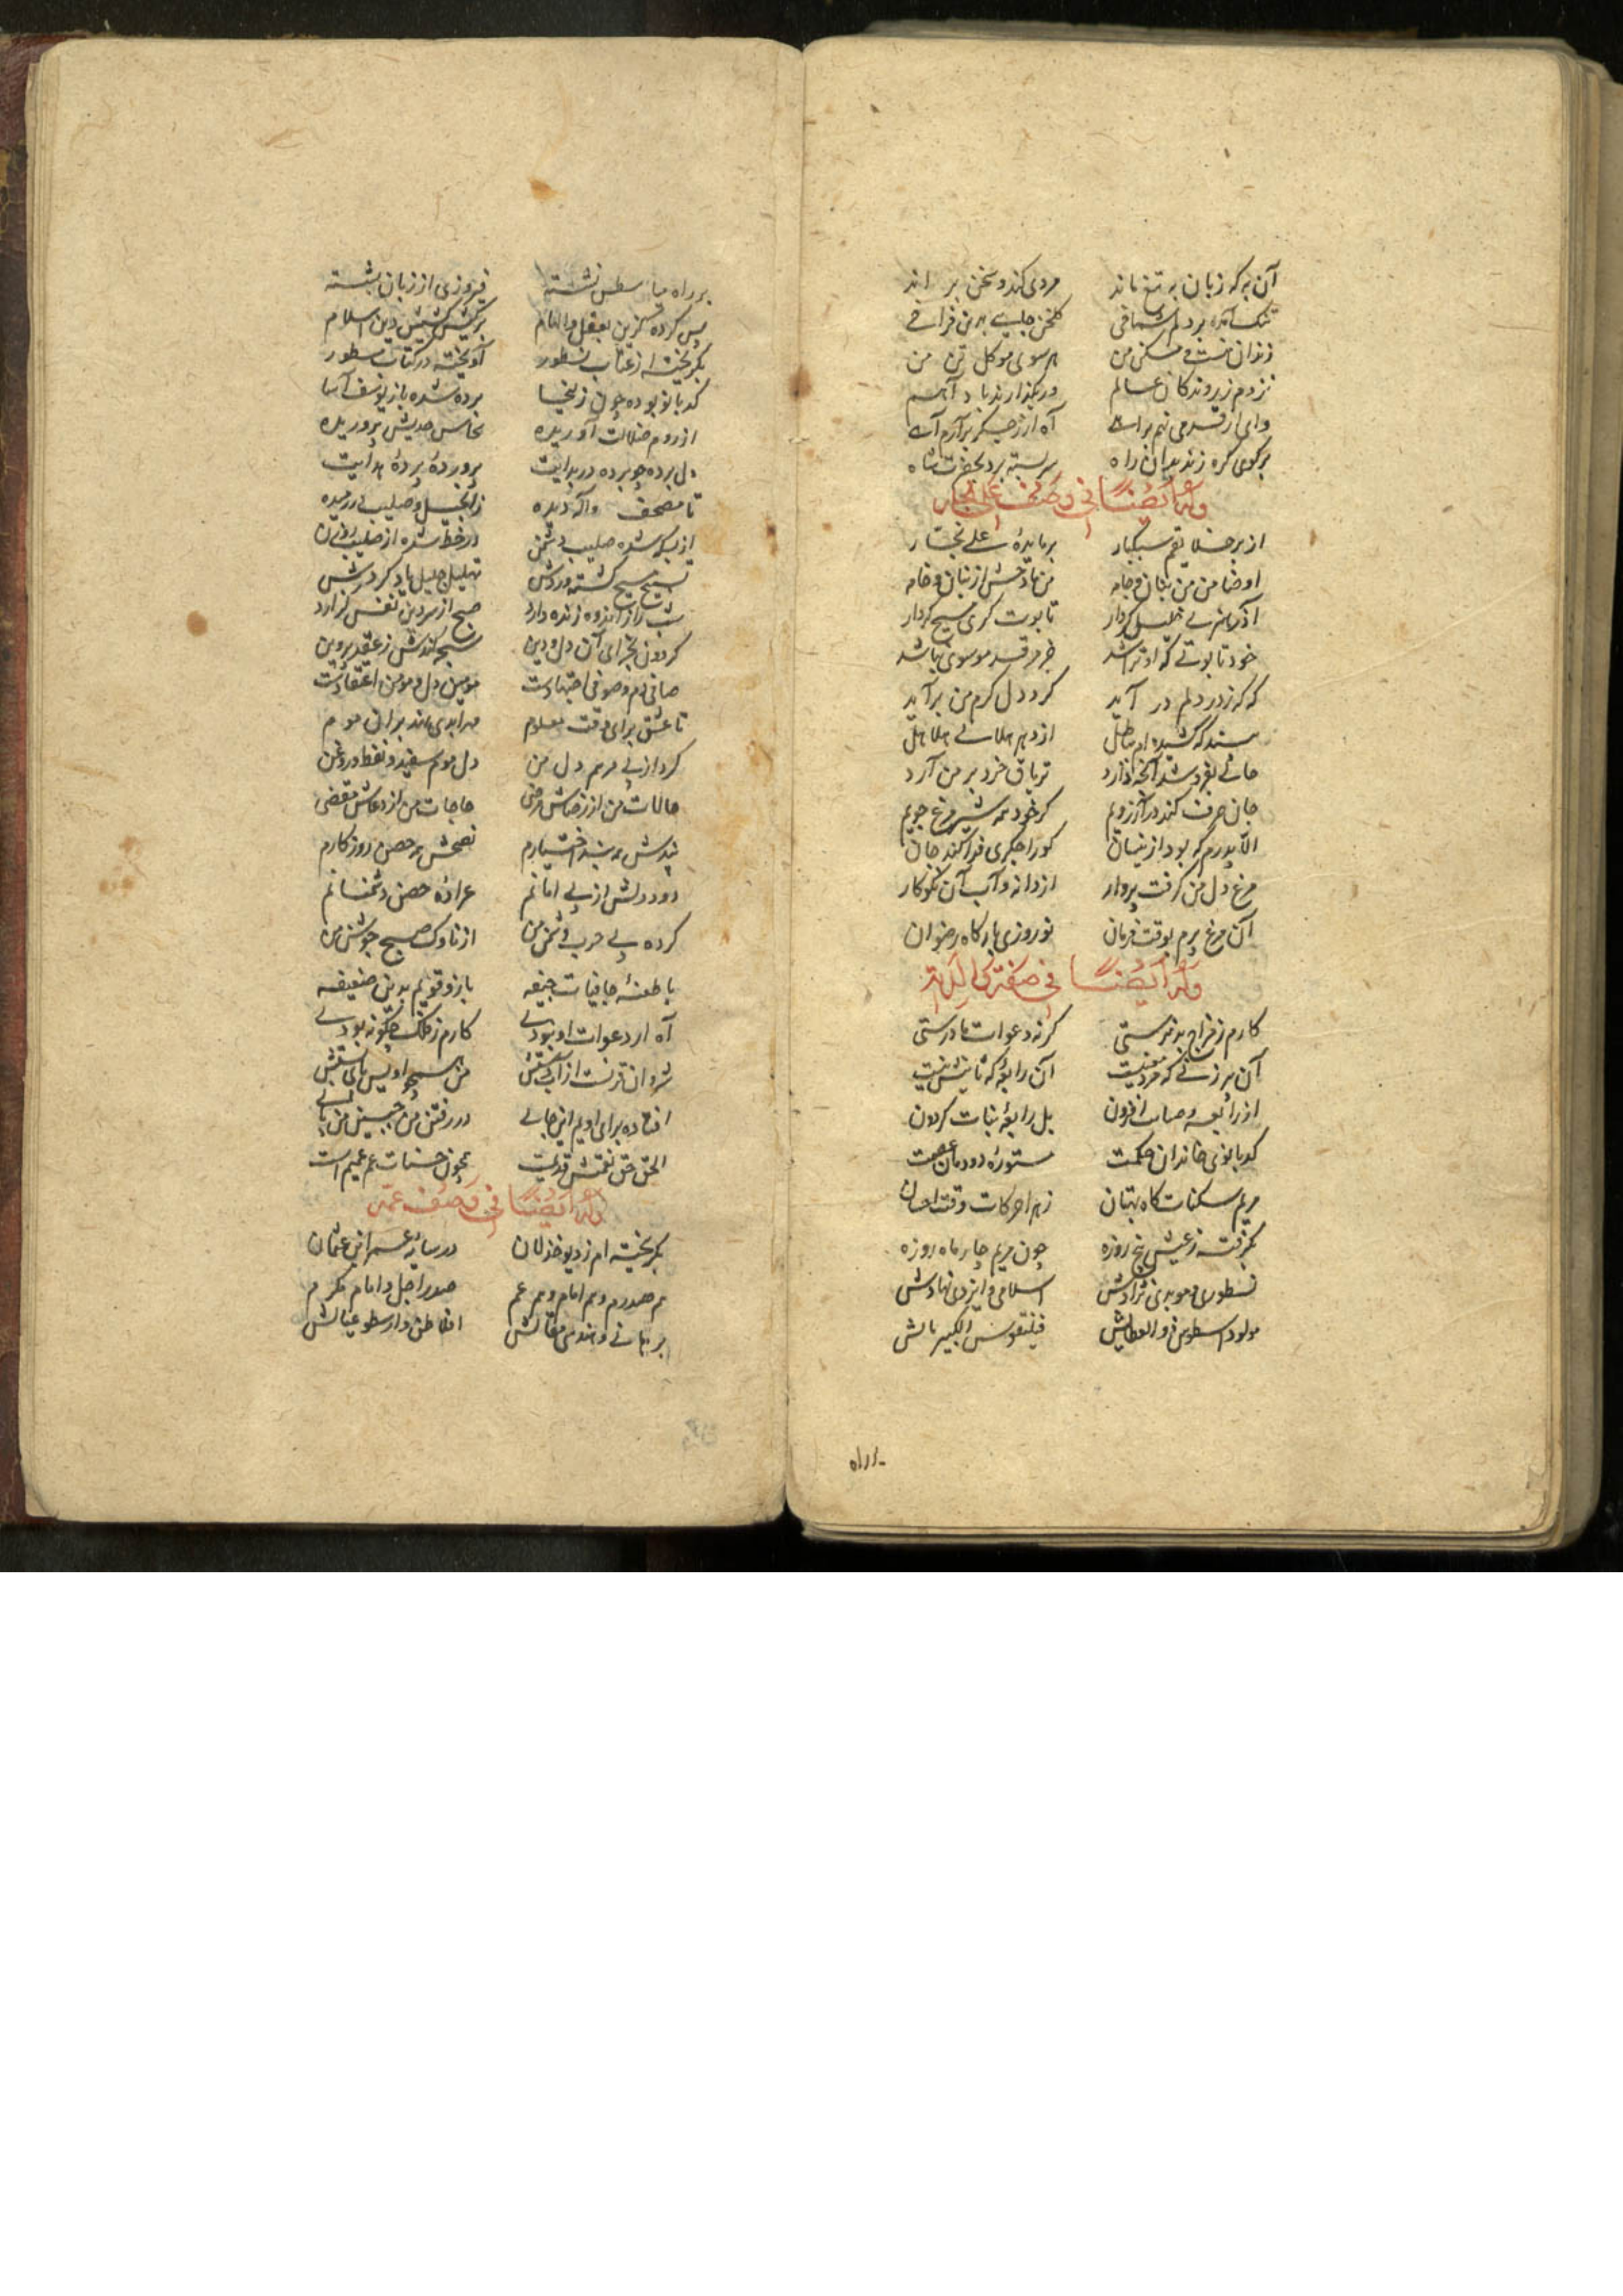 آن به که زبان به تیغ ماند مردی کند و سخن براند
تنگ آمده بر دلم گلخن
زندان منست مسکن من هر سوی موکل تن من
نزدم زیروندگان عالم
وای ار قدمی نهم براهت آه ار ز جگر برآرم آهت
بر کوی گره زند بدان راه سربسته برد بحضرت شاه
وله ایضا فی وصف علی نجار
از بر خلایقم سبکبار بر مایدهٔ علی نجار
او ضامن من بنان و جامه من مادحش از زبان و خامه
آذر هنری خلیل کردار تابوت گری مسیح گردار
خود تابوتی که او تراشد جز مرقد موسوی نباشد
که که ز در دلم در آید گرد دل گرم من برآید
بیند که کشیده ام بباطل از دهر هلاهلی هلاهل
حالی بفرو شد آنچه دارد تریاق خرد بر من آرد
جان صرف کند در آرزویم گر خود همه شیر مرغ جویم
الا پدرم که بود از نیسان کو را جگری فدا کند جان
مرغ دل من گرفت پروار از دانه و آب آن نکوکار
آن مرغ پرم بوقت فرمان نوروزی بارگاه رضوان
وله ایضا فی صفة والدته
کارم ز مزاج بد نرستی گر نه دعوات مادرستی
آن پیرزنی که مرد معنیست آن رابعهٔ که ثانیش نیست
از رابعه در صیانت افزون بل رابعهٔ بنات گردون
کدبانوی خاندان حکمت مستورهٔ دودمان عصمت
مریم سکنات گاه بهتان زهرا حرکات وقت احسان
بگرفته ز عیش پنج روزه چون مریم چار ماه روزه
نسطوری و موبدی نژادش اسلامی و ایزدی نهادش
مولد ذوالعطابش فیلقوس الکبیر بابش
بر راه نشسته فیروزی از زبان
پس کرده گزین بعقل و الهام بر کیش کشیش دین اسلام
بگریخته از عتاب نسطور آویخته در کتاب مسطور
کدبانو بوده چون زلیخا برده شده باز یوسف آسا
از روم ضلالت آوریده نخاس هدیش پروریده
دل برده چو برده در بدایت پروردهٔ بردهٔ هدایت
تا مصحف و لااله دیده ز انجیل و صلیب در رمیده
از بسکه شده صلیب دشمن در خط شده از صلیب روزن
تسبیح مسیح گشته وردش تهلیل خلیل یاد کردش
شب را ز اندوه زنده دارد صبح از سر دین نفس گزارد
گردون بجزای آن دل و دین سبحه کندش ز عقد پروین
صافی دم و صوفی اجتهادست مومین دل و مومن اعتقادست
تا عشق برای وقت معلوم مهر ابدی نهد بران موم
کرد از پی مرهم دل من دل موم سفید و لفظ روغن
حالات من از رضاش مرضی حاجات من از دعاش مقضی
پندش همه بند اختیارم نصحش همه حصن روزگارم
درد دلش از پی امانم عرادهٔ حصن دشمنانم
کرده پی حرب دشمن من از ناوک صبح جوشن من
با طعنهٔ جافیات جیفه بازو قویم بدین ضعیفه
آه ار دعوات او نبودی کارم ز فلک چگونه بودی
شروان قرنست از آب دستش من همچو اویس
افتاده برای اویم این جای در رفتن من جبین من پای
الحق حق نعمتش قدیمست چون حسنات عم عمیم است
وله ایضا فی وصف عمه
بگریخته ام ز دیو خذلان در سایهٔ عمر ابن عثمان
هم صدرم و هم امام و هم عم صدر اجل و امام مکرم
برهانی و هندسی مقالش افلاطن و ارسطو عیالش